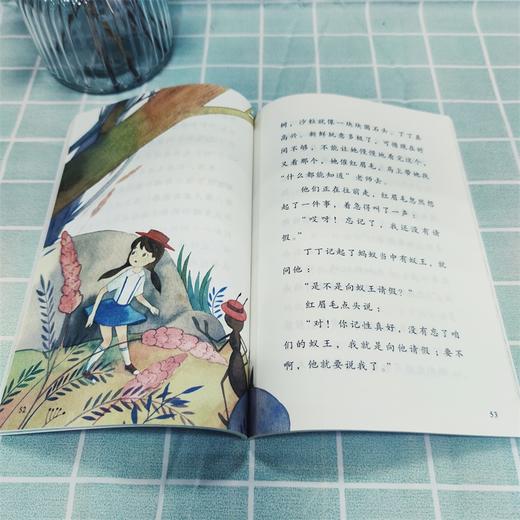 树，沙粒就像一块块圆石头。丁丁真
高兴。新鲜玩意多极了，可惜现在时
间不够，不能让她慢慢地看完这个，
又看那个，她催红眉毛，马上带她找
“什么都能知道”老师去。
他们正在往前走，红眉毛忽然想
起了一件事，着急得叫了一声：
“哎呀！忘记了，我还没有请
假。”
丁丁记起了蚂蚁当中有蚁王，就
问他：
“是不是向蚁王请假？”
红眉毛点头说：
“对！你记性真好，没有忘了咱
们的蚁王，我就是向他请假；要不
啊，他就要说我了。”
52
53